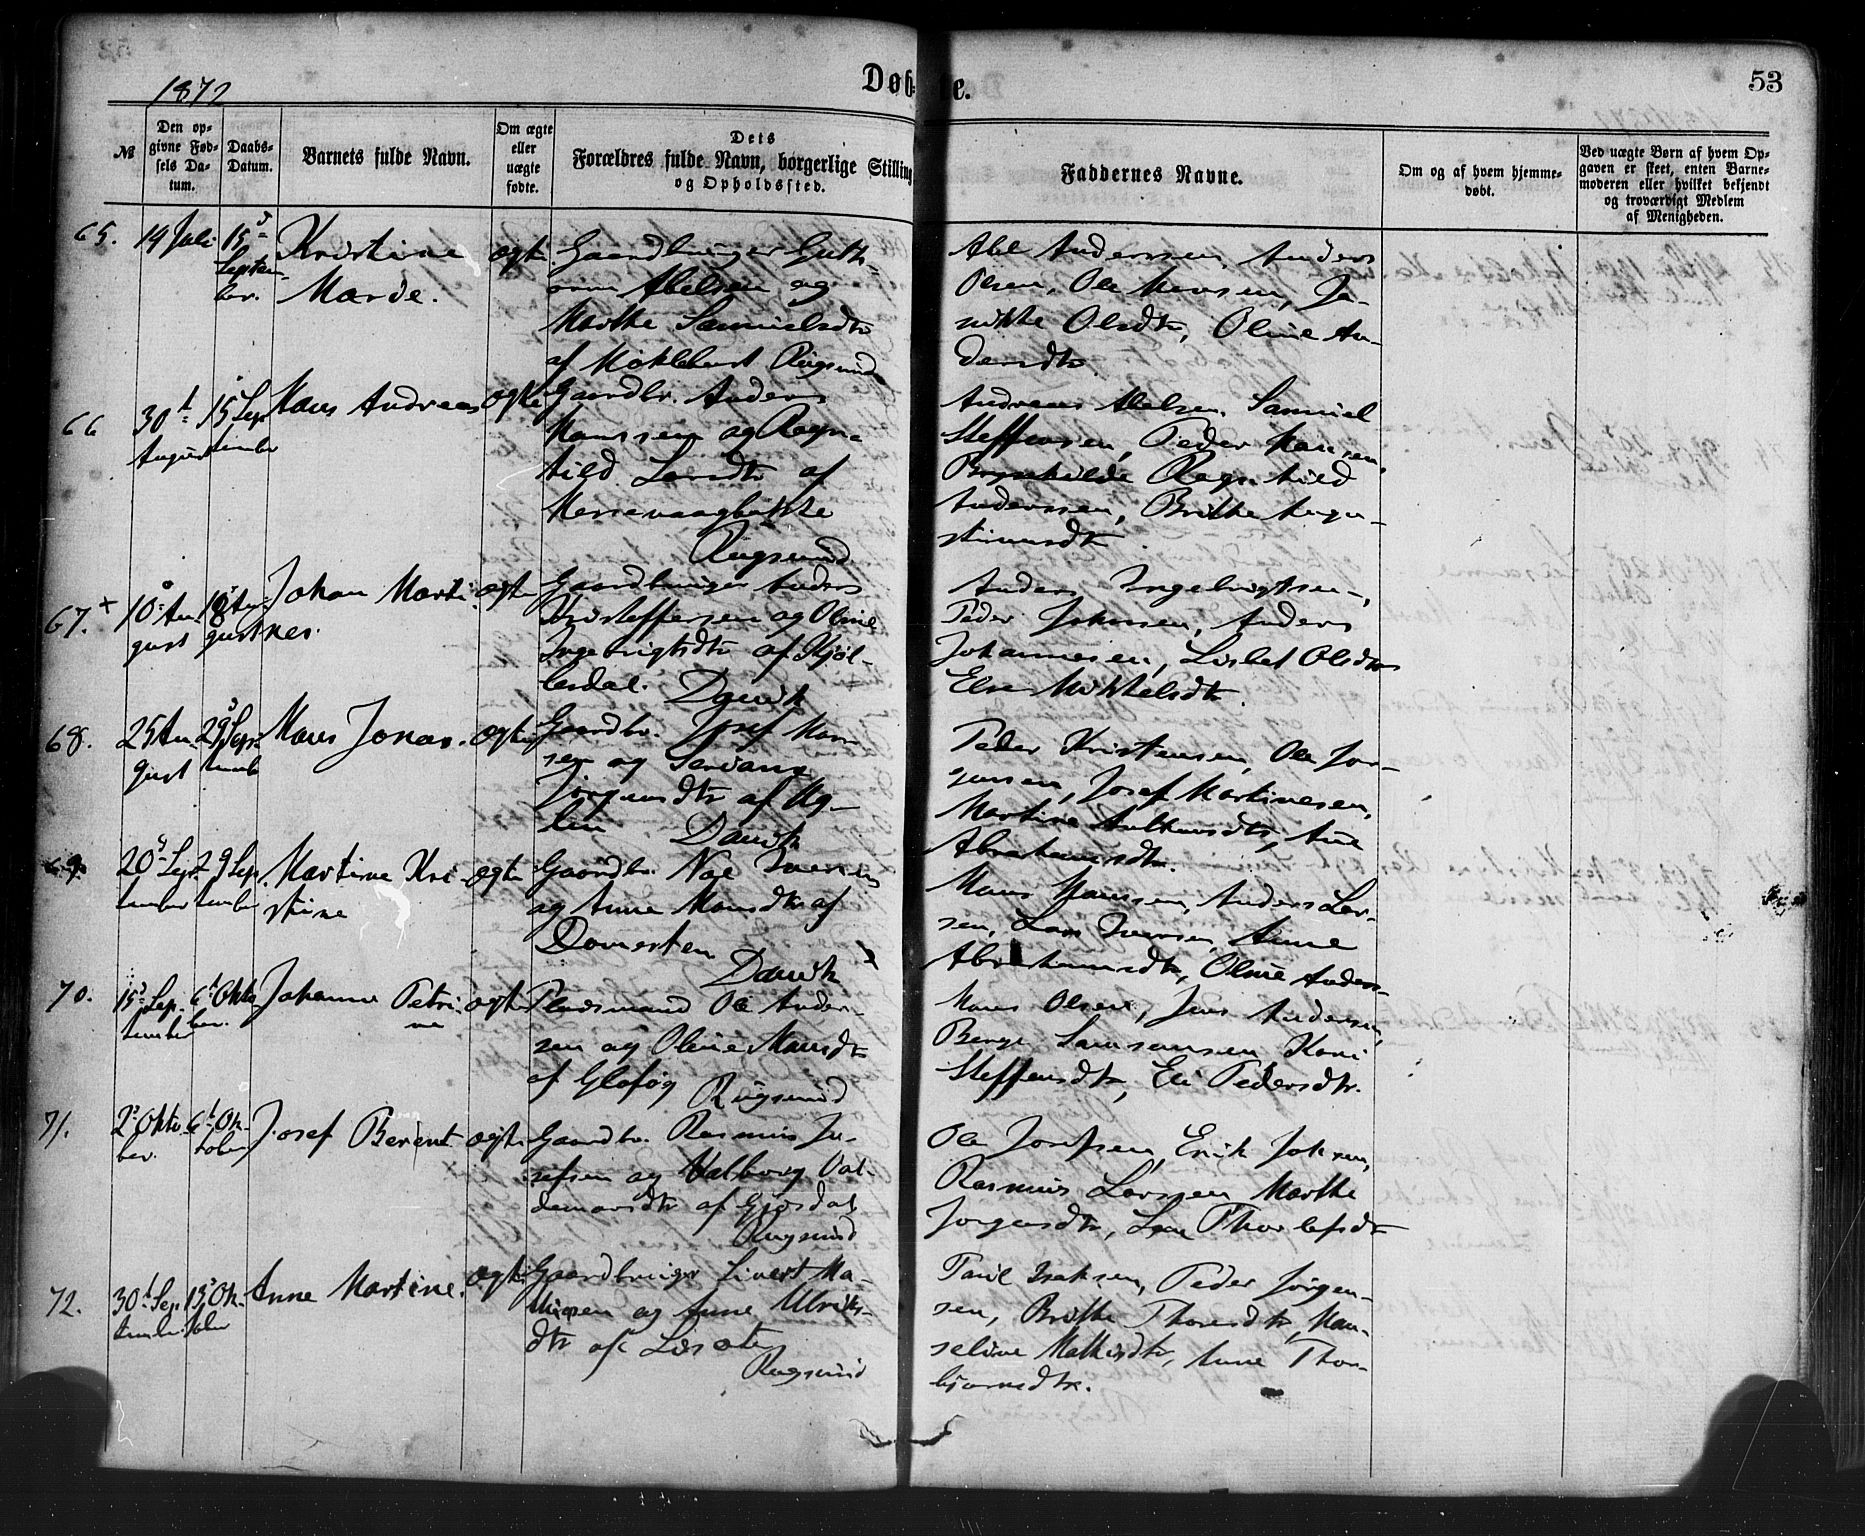 1872
Døbte.
53
№
Den op-
givne Fød-
sels Da-
tum.
Daabs-
Datum.
Barnets fulde Navn.
Om ægte
eller
uægte
fødte.
Dets
Forældres fulde Navn, borgerlige Stilling
og Opholdssted.
Faddernes Navne.
Om og af hvem hjemme-
døbt.
Ved uægte Børn af hvem Op-
gaven er skeet, enten Barne-
moderen eller hvilket bekjendt
og troværdigt Medlem
af Menigheden.
65.
14 Juli
15
Septem-
ber.
Kristine
ægte
Gaardbruger Guth-
orm Abelsen og
Marthe Samuelsdtr
af Moklebust Rugsund
Abel Anderssen, Anders
Olsen, Ole Monsen, Ja-
nikke Olsdtr, Oline An-
dersdtr
66
30t
August
15 Sep-
tember
Hans Andreas
ægte
Gaardbr. Anders
Hanssen og Ragn-
hild Larsdtr af
Rugsund
Andreas Abelsen, Samuel
Steffensen, Peder Hansen,
Ragnhild
Anderssen, Brithe Augu-
stinusdtr
67.+
10 Au-
gust
18 Au-
gust
Johan Marti-
nes.
ægte
Gaardbruger Anders
Kristoffersen og Oline
Ingebrigtsdtr af Kjøl-
lesdal. Davik
Anders Ingebrigtsen,
Peder Johnsen, Anders
Johannesen, Lisbet Olsdtr
Else Mikkelsdtr.
68.
25 Au-
gust
29 Sep-
temb
Hans Jonas.
ægte
Gaardbr. Josef Han-
sen og
Jørgensdtr af
Davik
Peder Kristensen, Ole Jør-
gensen, Josef Martinesen,
Martine Anthonsdtr, Ane
Abrahamsdtr.
69.
20 Sep-
tember
29 Sep-
tember
Martine Kri-
stine
ægte
Gaardbr. Noe Iversen
og Anne Monsdtr af
Domesten
Davik
Hans Hanssen, Anders Lar-
sen, Lars Iversen, Anne
Abrahamsdtr, Oline Anders-
70.
15 Sep-
tember
6t Okto-
ber.
Johanne Petri-
ne
ægte
Pladsmand Ole Ander-
sen og Oline Hansdtr
af Rugsund
Hans Olsen, Jens Andersen,
Berge Samsonsen, Kari
Steffensdtr, Eli Pedersdtr.
71.
2 Okto-
ber.
6t Ok-
tober
Josef Berent
ægte
Gaardbr. Rasmus Jo-
sefsen og Valborg Val-
demarsdtr af Gjørsdal
Rugsund
Ole Josefsen, Erik Johnsen,
Rasmus Larssen, Marthe
Jørgensdtr, Lene Thorlefsdtr
72.
30t Sep-
tember
13 Ok-
tober
Anne Martine.
ægte
Gaardbruger Sivert Ma-
thiasen og Anne Ulriks-
dtr af
Rugsund
Paul Isaksen, Peder Jørgen-
sen, Brithe Thoresdtr, Han-
seline Mathisdtr, Anne Thor-
bjørnsdtr.